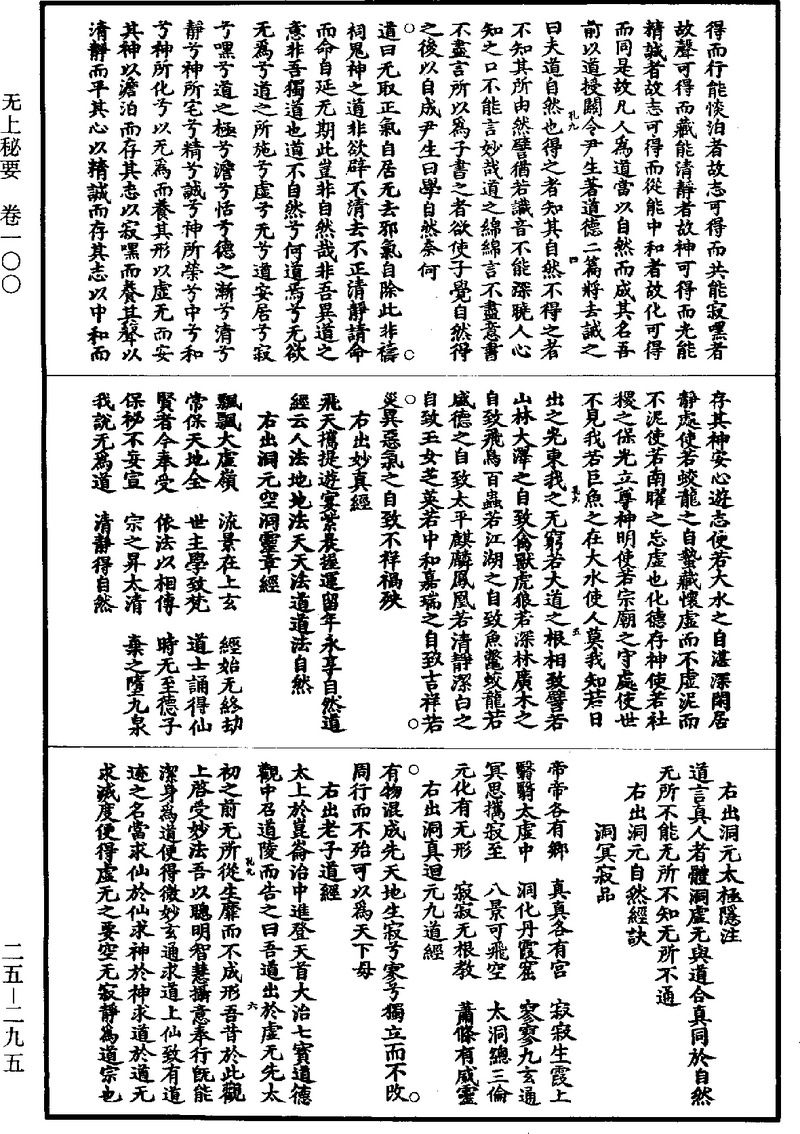 得而行能惔泊者故志可得而共能寂嘿者
故聲可得而藏能清靜者故神可得而光能
精誠者故志可得而從能中和者故化可得
而同是故凡人為道當以自然而成其名吾
前以道授關令尹生著道德二篇將去誡之
孔九 四
曰夫道自然也得之者知其自然不得之者
不知其所由然譬猶若識音不能深曉人心
知之口不能言妙哉道之綿綿言不盡意書
不盡言所以為子書之者欲使子覺自然得
之後以自成尹生曰學自然奈何
道曰无取正氣自居无去邪氣自除此非禱
祠鬼神之道非欲辟不清去不正清靜請命
而命自延无期此豈非自然哉非吾異道之
意非吾獨道也道不自然兮何道焉兮无欲
无為兮道之所施兮虛兮无兮道安居兮寂
兮嘿兮道之極兮澹兮恬兮德之漸兮清兮
靜兮神所宅兮精兮誠兮神所榮兮中兮和
兮神所化兮以无為而養其形以虛无而安
其神以澹泊而存其志以寂嘿而養其聲以
清靜而平其心以精誠而存其志以中和而
存其神安心遊志使若大水之自湛深閑居
靜處使若蛟龍之自蟄藏懷虛而不虛泥而
不泥使若南曜之忘虛也化德存神使若社
稷之保光立尊神明使若宗廟之守處使世
不見我若巨魚之在大水使人莫我知若日
五
出之光東我之无窮若大道之根相致譬若
山林大澤之自致禽獸虎狼若深林廣木之
自致飛鳥百蟲若江湖之自致魚鼈蛟龍若
盛德之自致太平麒麟鳳凰若清靜潔白之
自致玉女芝英若中和嘉瑞之自致吉祥若
災異惡氣之自致不祥禍殃
右出妙真經
飛天攜提遊宴紫晨握運留年永享自然道
經云人法地地法天天法道道法自然
右出洞元空洞靈章經
飄飄大虛嶺 流景在上玄 經始无終劫
常保天地全 世主學致梵 道士誦得仙
賢者令奉受 依法以相傳 時无至德子
保秘不妄宣 宗之昇太清 棄之墮九泉
我說无為道 清靜得自然
右出洞元太極隱注
道言真人者體洞虛无與道合真同於自然
无所不能无所不知无所不通
右出洞元自然經訣
洞冥寂品
帝帝各有鄉 真真各有宮 寂寂生霞上
翳翳太虛中 洞化丹霞窟 寥寥九玄通
冥思攜寂至 八景可飛空 太洞總三倫
元化有无形 寂寂无根教 蕭條有威靈
右出洞真迴元九道經
有物混成先天地生寂兮寥兮獨立而不改
周行而不殆可以為天下母
右出老子道經
太上於崑崙治中進登天首大治七寶道德
觀中召道陵而告之曰吾道出於虛无先太
孔九 六
初之前无所從生靡而不成形吾昔於此觀
上啓受妙法吾以聰明智慧攝意奉行旣能
潔身為道便得微妙玄通求道上仙致有道
迹之名當求仙於仙求神於神求道於道无
求滅度便得虛无之要空无寂靜為道宗也
无上秘要 卷一〇〇
二五—二九五